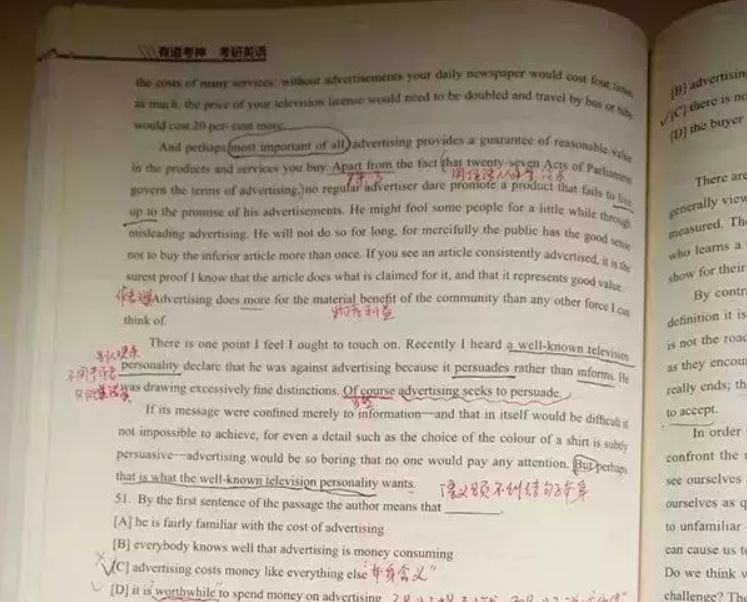 有道考神 考研英语
the costs of many services: without advertisements your daily newspaper would cost four times
as much, the price of your television license would need to be doubled and travel by bus or tube
would cost 20 per cent more.
And perhaps most important of all, advertising provides a guarantee of reasonable value
in the products and services you buy. Apart from the fact that twenty-seven Acts of Parliament
govern the terms of advertising, no regular advertiser dare promote a product that fails to live
up to the promise of his advertisements. He might fool some people for a little while through
misleading advertising. He will not do so for long, for mercifully the public has the good sense
not to buy the inferior article more than once. If you see an article consistently advertised, it is the
surest proof I know that the article does what is claimed for it, and that it represents good value.
Advertising does more for the material benefit of the community than any other force I can
物质利益
think of.
There is one point I feel I ought to touch on. Recently I heard a well-known television
personality declare that he was against advertising because it persuades rather than informs. He
was drawing excessively fine distinctions. Of course advertising seeks to persuade.
If its message were confined merely to information—and that in itself would be difficult if
not impossible to achieve, for even a detail such as the choice of the colour of a shirt is subtly
persuasive—advertising would be so boring that no one would pay any attention. But perhaps
that is what the well-known television personality wants.
51. By the first sentence of the passage the author means that
[A] he is fairly familiar with the cost of advertising
[B] everybody knows well that advertising is money consuming
[C] advertising costs money like everything else
[D] it is worthwhile to spend money on advertising
[B] advertising
[C] there is no
[D] the buyer
There are
generally view
measured. Th
who learns a
show for their
By contr
definition it is
is not the road
as they encou
really ends; th
to accept.
In order
confront the
see ourselves
ourselves as q
to unfamiliar
can cause us to
Do we think w
challenge? The